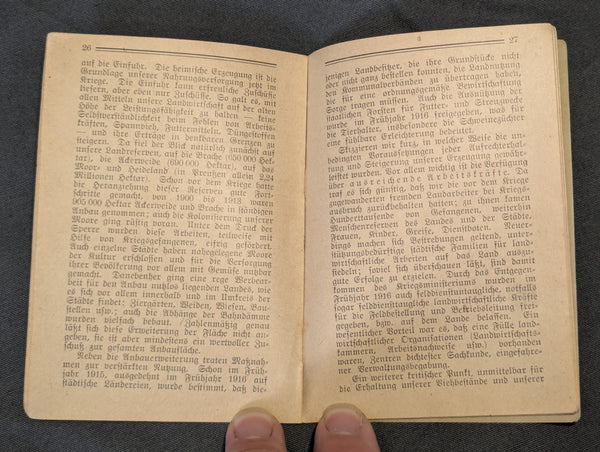 26
auf die Einfuhr. Die heimische Erzeugung ist die
Grundlage unserer Nahrungsversorgung jetzt im
Kriege. Die Einfuhr kann erfreuliche Zuschüsse
liefern, aber eben nur Zuschüsse. So galt es, mit
allen Mitteln unsere Landwirtschaft auf der alten
Höhe der Leistungsfähigkeit zu halten — keine
Selbstverständlichkeit beim Fehlen von Arbeits-
kräften, Spannvieh, Futtermitteln, Düngestoffen
— und ihre Erträge in denkbaren Grenzen zu
steigern. Da fiel der Blick natürlich zunächst auf
unsere Landreserven, auf die Brache (650 000 Hek-
tar), die Ackerweide (690 000 Hektar), auf das
Moor- und Heideland (in Preußen allein 2,24
Millionen Hektar). Schon vor dem Kriege hatte
die Heranziehung dieser Reserven gute Fort-
schritte gemacht, von 1900 bis 1913 waren
905 000 Hektar Ackerweide und Brache in ständigen
Anbau genommen; auch die Kolonisierung unserer
Moore ging rüstig voran. Unter dem Druck der
Sperre wurden diese Arbeiten, teilweise mit
Hilfe von Kriegsgefangenen, eifrig gefördert.
Auch einzelne Städte haben nahegelegene Moore
der Kultur erschlossen und für die Versorgung
ihrer Bevölkerung vor allem mit Gemüse nutzbar
gemacht. Danebenher ging eine rege Werbear-
beit für den Anbau nutzlos liegenden Landes, wie
es sich vor allem innerhalb und im Umkreis der
Städte findet: Ziergärten, Weiden, Wiesen, Bau-
stellen usw.; auch die Abhänge der Bahndämme
wurden vielfach bebaut. Zahlenmäßig genau
läßt sich diese Erweiterung der Fläche nicht an-
geben, sie ist aber mindestens ein wertvoller Zu-
schuß zur gesamten Anbaufläche.
Neben die Anbauerweiterung traten Maßnah-
men zur verstärkten Nutzung. Schon im Früh-
jahr 1915, ausgedehnt im Frühjahr 1916 auf
städtische Ländereien, wurde bestimmt, daß die-
27
jenigen Landbesitzer, die ihre Grundstücke nicht
oder nicht ganz bestellen konnten, die Landnutzung
den Kommunalverbänden zu übertragen haben,
die für eine ordnungsgemäße Bewirtschaftung
Sorge tragen müssen. Auch die Ausnützung der
staatlichen Forsten für Futter- und Streuzwecke
wurde im Frühjahr 1916 freigegeben, was für
die Tierhalter, insbesondere die Schweinezüchter
eine fühlbare Erleichterung bedeutet.
Skizzieren wir kurz, in welcher Weise die un-
bedingten Voraussetzungen jeder Aufrechterhal-
tung und Steigerung unserer Erzeugung gewähr-
leistet wurden. Vor allem wichtig die Verfügung
über ausreichende Arbeitskräfte. Da
traf es sich günstig, daß wir die vor dem Kriege
zugewanderten fremden Landarbeiter bei Kriegs-
ausbruch zurückbehalten hatten; zu ihnen kamen
Hunderttausende von Gefangenen, weiterhin
Menschenreserven des Landes und der Städte,
Frauen, Kinder, Greise, Dienstboten. Neuer-
dings machen sich Bestrebungen geltend, unter-
stützungsbedürftige städtische Familien für land-
wirtschaftliche Arbeiten auf das Land auszu-
siedeln; soviel sich überschauen läßt, sind damit
gute Erfolge zu erzielen. Durch das Entgegen-
kommen des Kriegsministeriums wurden im
Frühjahr 1916 auch felddienstuntaugliche, notfalls
sogar felddiensttaugliche landwirtschaftliche Kräfte
für die Feldbestellung und Betriebsleitung frei-
gegeben, bzw. auf dem Lande belassen. Ein
wesentlicher Vorteil war es, daß eine Fülle land-
wirtschaftlicher Organisationen (Landwirtschafts-
kammern, Arbeitsnachweise usw.) vorhanden
waren, Zentren dichtester Sachkunde, eingefahre-
ner Verwaltungsbegabung.
Ein weiterer kritischer Punkt, unmittelbar für
die Erhaltung unserer Viehbestände und unserer